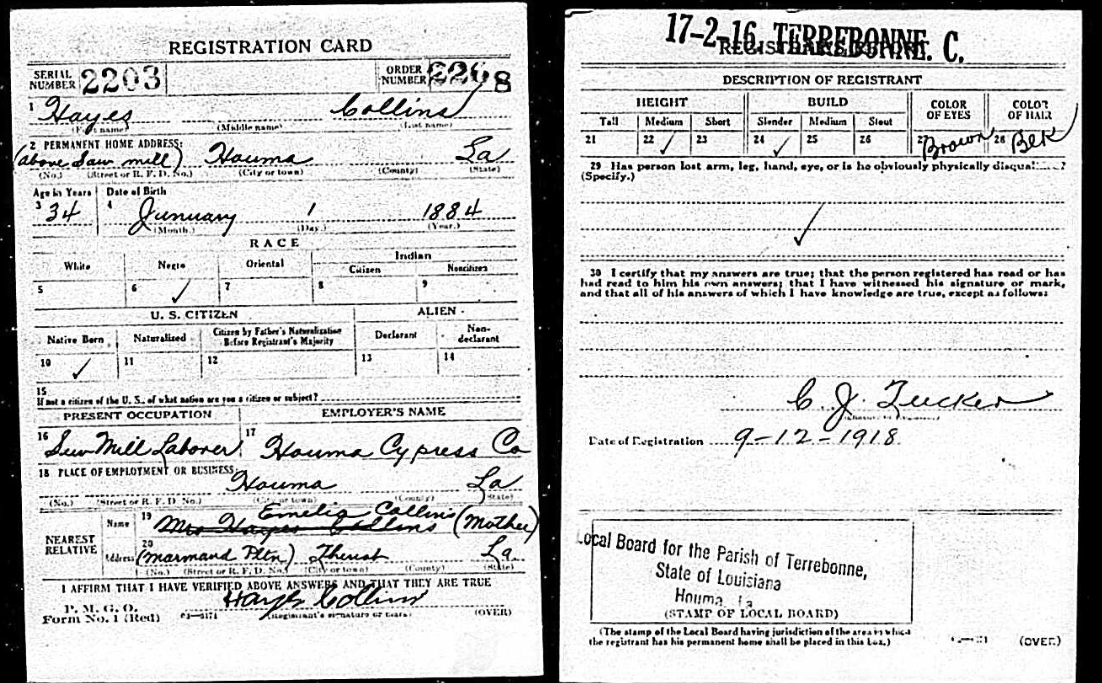 REGISTRATION CARD
SERIAL NUMBER 2203 ORDER NUMBER
1 Hayes Collins
(First name) (Middle name) (Last name)
2 PERMANENT HOME ADDRESS:
(above Saw mill) Houma La
(No.) (Street or R. F. D. No.) (City or town) (County) (State)
Age in Years Date of Birth
3 34 4 January 1 1884
(Month.) (Day.) (Year.)
RACE
White Negro Oriental Indian
Citizen Noncitizen
5 6 ✓ 7 8 9
U. S. CITIZEN ALIEN
Native Born Naturalized Citizen by Father's Naturalization Before Registrant's Majority Declarant Non-declarant
10 ✓ 11 12 13 14
15
If not a citizen of the U. S., of what nation are you a citizen or subject?
PRESENT OCCUPATION EMPLOYER'S NAME
16 Saw Mill Laborer 17 Houma Cypress Co
18 PLACE OF EMPLOYMENT OR BUSINESS:
Houma La
(No.) (Street or R. F. D. No.) (City or town) (County) (State)
Emelia Collins
NEAREST RELATIVE Name 19 Mrs Hayes Collins (Mother)
Address 20 (Marmand Pltn) Theriot La
(No.) (Street or R. F. D. No.) (City or town) (County) (State)
I AFFIRM THAT I HAVE VERIFIED ABOVE ANSWERS AND THAT THEY ARE TRUE
P. M. G. O.
Form No. 1 (Red) Hayes Collins
(Registrant's signature or mark) (OVER)
17-2-16 TERREBONNE. C.
REGISTRAR'S REPORT
DESCRIPTION OF REGISTRANT
HEIGHT BUILD COLOR OF EYES COLOR OF HAIR
Tall Medium Short Slender Medium Stout
21 22 ✓ 23 24 ✓ 25 26 27 Brown 28 Blk
29 Has person lost arm, leg, hand, eye, or is he obviously physically
(Specify.)
✓
30 I certify that my answers are true; that the person registered has read or has
had read to him his own answers; that I have witnessed his signature or mark,
and that all of his answers of which I have knowledge are true, except as follows:
C. J. Tucker
Date of Registration 9-12-1918
Local Board for the Parish of Terrebonne,
State of Louisiana
Houma, La
(STAMP OF LOCAL BOARD)
(The stamp of the Local Board having jurisdiction of the area in which
the registrant has his permanent home shall be placed in this box.) (OVER)